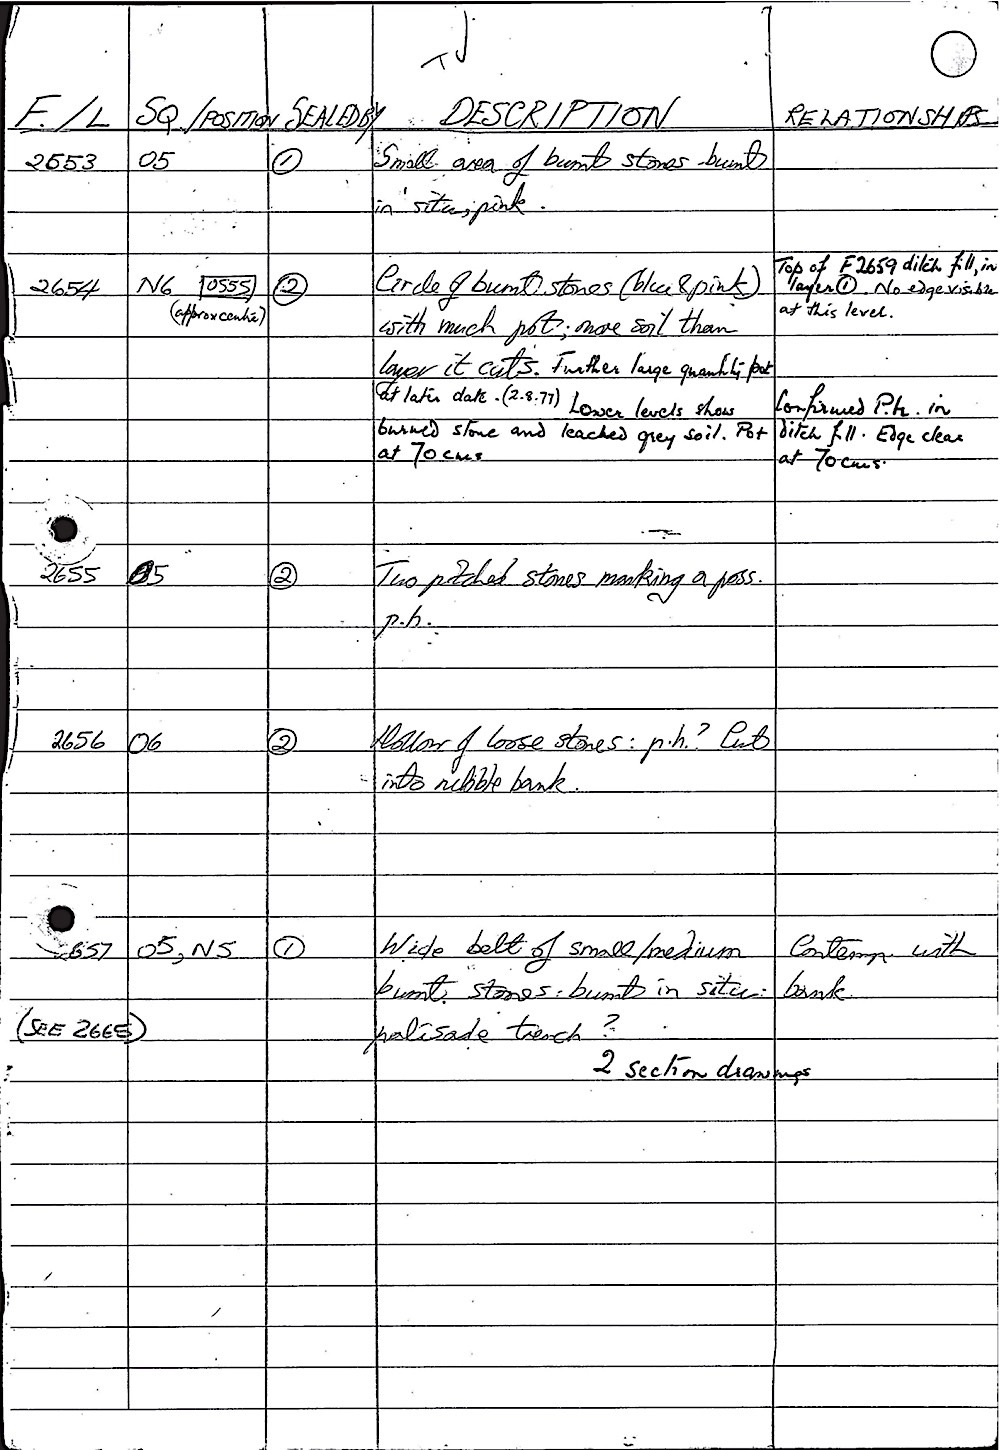 F. / L SQ./POSITION SEALED BY DESCRIPTION RELATIONSHIPS
2653 05 ① Small area of burnt stones burnt
in situ; pink.
2654 N6 0555 ② Circle of burnt stones (blue & pink)
(approx centre) with much pot; more soil than
layer it cuts. Further large quantity pot
at later date. (2.8.77) Lower levels show
burned stone and leached grey soil. Pot
at 70 cms
Top of F2659 ditch fill, in
layer ①. No edge visible
at this level.
Confirmed P.h. in
ditch fill. Edge clear
at 70 cms.
2655 05 ② Two pitched stones marking a poss.
p.h.
2656 06 ② Hollow of loose stones: p.h.? Cut
into rubble bank.
657 05, N5 ① Wide belt of small/medium
burnt stones: burnt in situ:
(SEE 2665) palisade trench?
2 section drawings
Contemp. with
bank.